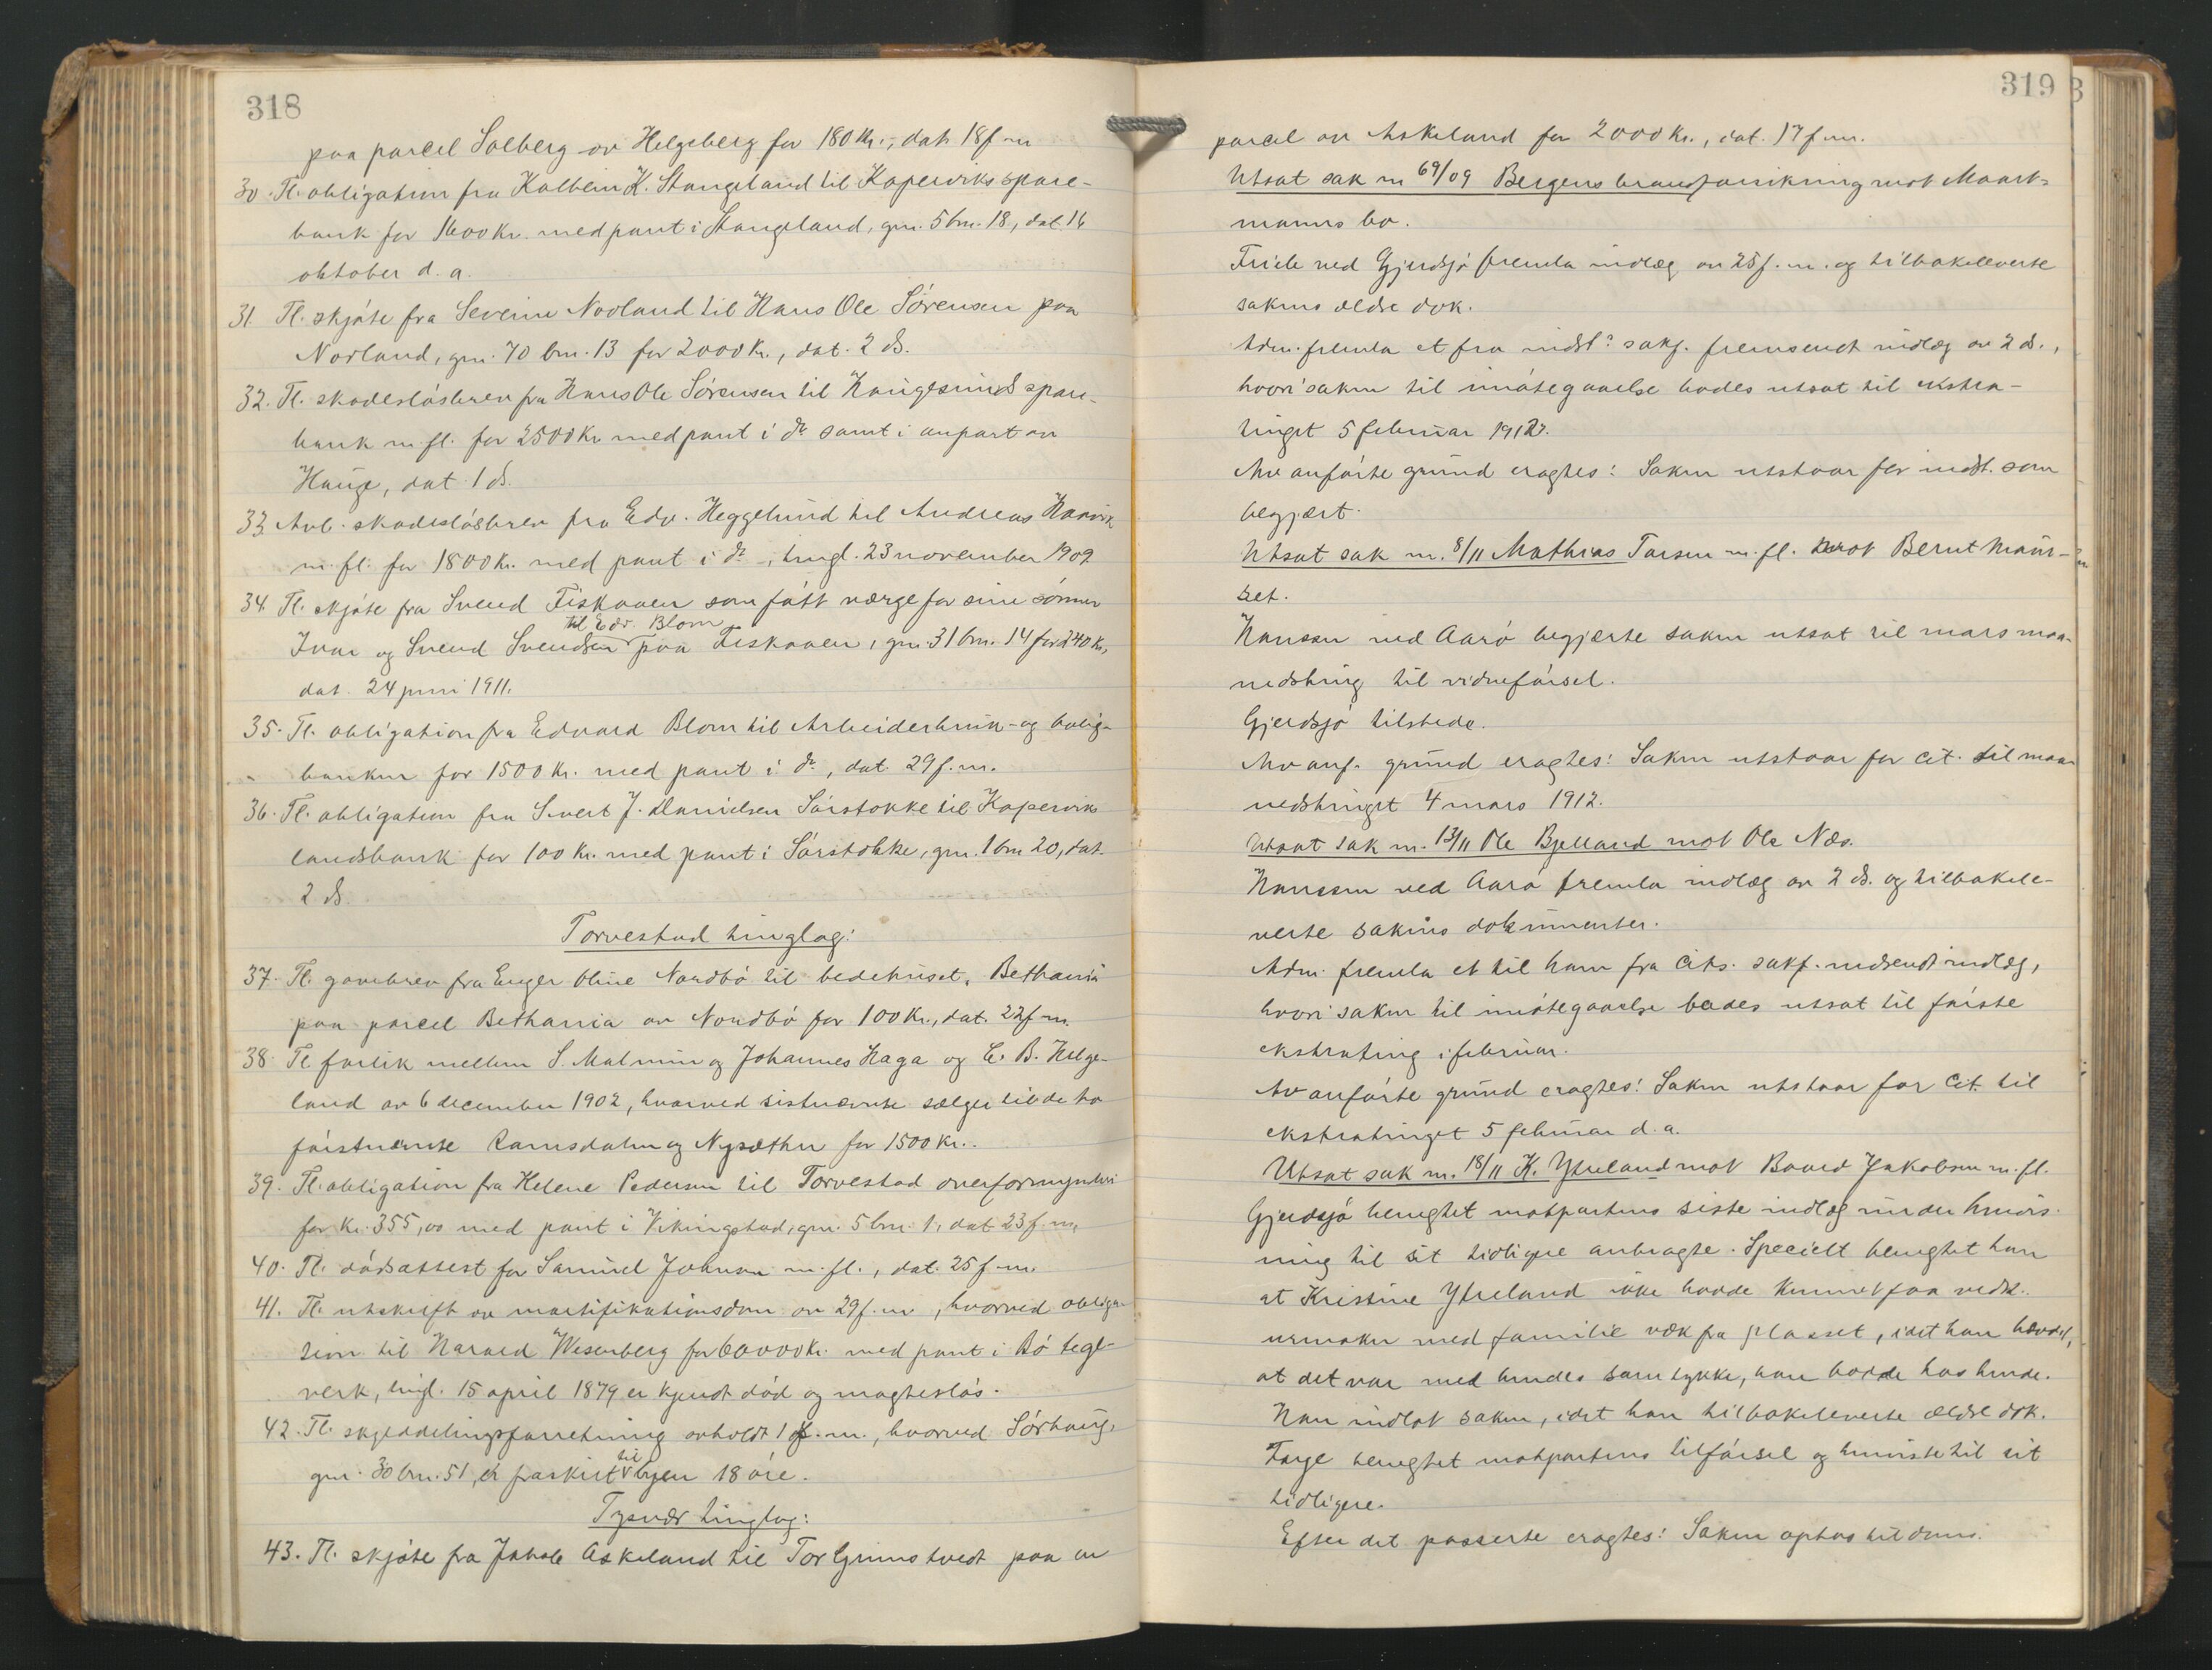 318
paa parcel Solberg av Helgeberg for 180 Kr., dat. 18 f.m.
30. Tl. obligation fra Kolbein K. Stangeland til Kopervik spare-
bank for 1600 Kr. med pant i Stangeland, gnr. 5 bnr. 18, dat. 16
oktober d. a.
31. Tl. skjöte fra Severin Norland til Hans Ole Sörensen paa
Norland, gnr. 70 bnr. 13 for 2000 Kr., dat. 2 ds.
32. Tl. skadeslösbrev fra Hans Ole Sörensen til Haugesunds spare-
bank m. fl. for 2500 Kr. med pant i do samt i anpart av
Hauge, dat. 1 ds.
33. Avl. skadeslösbrev fra Edv. Heggelund til Andreas Haavik
m. fl. for 1800 Kr. med pant i do, tingl. 23 november 1909
34. Tl. skjöte fra Svend Fiskaaen som født værge for sine sönner
til Edv. Blom
Ivar og Svend Svendsen paa Fiskaaen, gnr. 31 bnr. 14 for 240 Kr.,
dat. 24 juni 1911.
35. Tl. obligation fra Edvard Blom til Arbeiderbruk- og bolig-
banken for 1500 Kr. med pant i do, dat. 29 f.m.
36. Tl. obligation fra Sivert J. Danielsen Sörstokke til Kopervik
landsbank for 100 Kr. med pant i Sörstokke, gnr. 1 bnr. 20, dat.
2 ds.
Torvestad tinglag:
37. Tl. gavebrev fra Enger Oline Nordbö til bedehuset, Bethania
paa parcel Bethania av Nordbö for 100 Kr., dat. 22 f.m.
38. Tl. forlik mellem S. Malmin og Johannes Haga og C. B. Helge-
land av 6 december 1902, hvorved sistnævnte sælger til de to
förstnævnte Ramsdalen og Nysæther for 1500 Kr.
39. Tl. obligation fra Helene Pedersen til Torvestad overformynderi
for Kr. 355,00 med pant i Vikingstad, gnr. 5 bnr. 1, dat 23 f.m.
40. Tl. dödsattest for Samuel Johnsen m. fl., dat. 25 f.m.
41. Tl. utskrift av mortifikationsdom av 29 f.m., hvorved obliga-
tion til Harald Wesenberg for 60000 Kr. med pant i Bö tegl-
verk, tingl. 15 april 1879 er kjendt död og magteslös.
42. Tl. skylddelingsforretning avholdt 1 f.m., hvorved Sörhaug,
til
gnr. 30 bnr. 51, er fraskilt byen 18 öre.
Tysvær tinglag:
43. Tl. skjöte fra Jakob Askeland til Tor Grimstvedt paa en
319
parcel av Askeland for 2000 Kr., dat. 17 f.m.
Utsat sak nr. 69/09 Bergens brandforsikring mot Maart-
manns bo.
Friele ved Gjerdsjö fremla indlæg av 25 f.m. og tilbakeleverte
sakens ældre dok.
Adm. fremla et fra indst.s sakf. fremsendt indlæg av 2 ds.,
hvori saken til imötegaaelse bades utsat til ekstra-
tinget 5 februar 1912.
Av anförte grund eragtes: Saken utstaar for indst. som
begjært.
Utsat sak nr. 8/11 Mathias Larsen m. fl. mot Bernt Maur-
set.
Hanssen ved Aarö begjærte saken utsat til mars maa-
nedsting til vidneförsel.
Gjerdsjö tilstede.
Av anf. grund eragtes: Saken utstaar for cit. til maa-
nedstinget 4 mars 1912.
Utsat sak nr. 13/11 Ole Bjelland mot Ole Næs.
Hanssen ved Aarö fremla indlæg av 2 ds. og tilbakele-
verte sakens dokumenter.
Adm. fremla et til ham fra cits. sakf. indsendt indlæg,
hvori saken til imötegaaelse bades utsat til förste
ekstrating i februar.
Av anförte grund eragtes: Saken utstaar for cit. til
ekstratinget 5 februar d. a.
Utsat sak nr. 18/11 K. Ytreland mot Baard Jakobsen m. fl.
Gjerdsjö benegtet motpartens siste indlæg under henvis-
ning til sit tidligere anbragte. Specielt benegtet han
at Kristine Ytreland ikke hadde kunnet faa vedk.
urmaker med familie væk fra plasset, idet han hævdet,
at det var med hendes samtykke, han bodde hos hende.
Han indlot saken, idet han tilbakeleverte ældre dok.
Farje benegtet motpartens tilförsel og henviste til sit
tidligere.
Efter det passerte eragtes: Saken optas til doms.